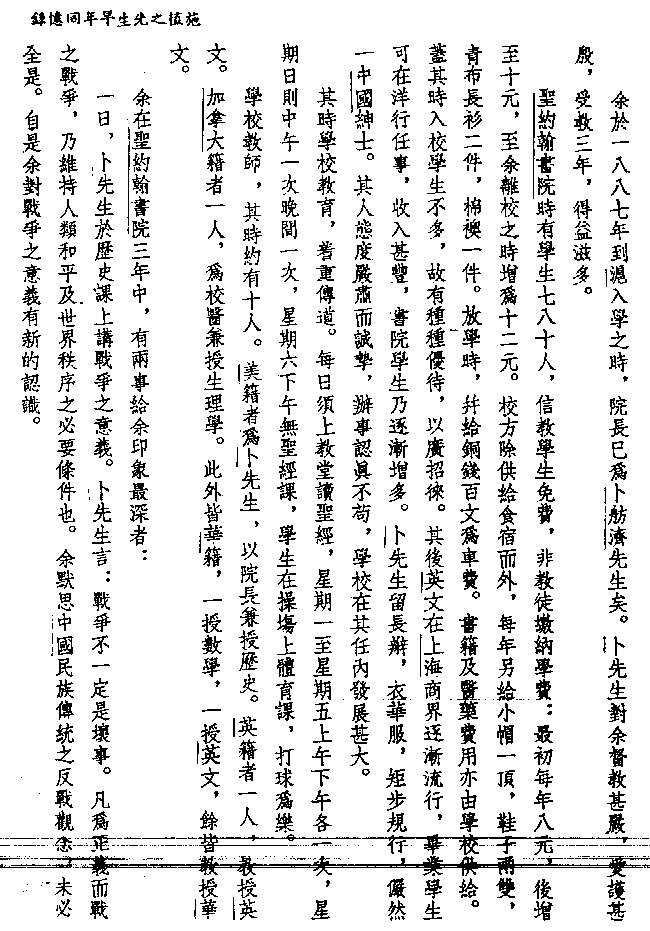 施植之先生早年回憶錄
余於一八八七年到滬入學之時，院長已為卜舫濟先生矣。卜先生對余督教甚嚴，愛護甚
殷，受教三年，得益滋多。
聖約翰書院時有學生七八十人，信教學生免費，非教徒繳納學費：最初每年八元，後增
至十元，至余離校之時增為十二元。校方除供給食宿而外，每年另給小帽一頂，鞋子兩雙，
青布長衫二件，棉襖一件。放學時，幷給銅錢百文為車費。書籍及醫藥費用亦由學校供給。
蓋其時入校學生不多，故有種種優待，以廣招徠。其後英文在上海商界逐漸流行，畢業學生
可在洋行任事，收入甚豐，書院學生乃逐漸增多。卜先生留長辮，衣華服，矩步規行，儼然
一中國紳士。其人態度嚴肅而誠摯，辦事認眞不苟，學校在其任內發展甚大。
其時學校教育，着重傳道。每日須上教堂讀聖經，星期一至星期五上午下午各一次，星
期日則中午一次晚間一次，星期六下午無聖經課，學生在操塲上體育課，打球為樂。
學校教師，其時約有十人。美籍者為卜先生，以院長兼授歷史。英籍者一人，教授英
文。加拿大籍者一人，為校醫兼授生理學。此外皆華籍，一授數學，一授英文，餘皆教授華
文。
余在聖約翰書院三年中，有兩事給余印象最深者：
一日，卜先生於歷史課上講戰爭之意義。卜先生言：戰爭不一定是壞事。凡為正義而戰
之戰爭，乃維持人類和平及世界秩序之必要條件也。余默思中國民族傳統之反戰觀念，未必
全是。自是余對戰爭之意義有新的認識。